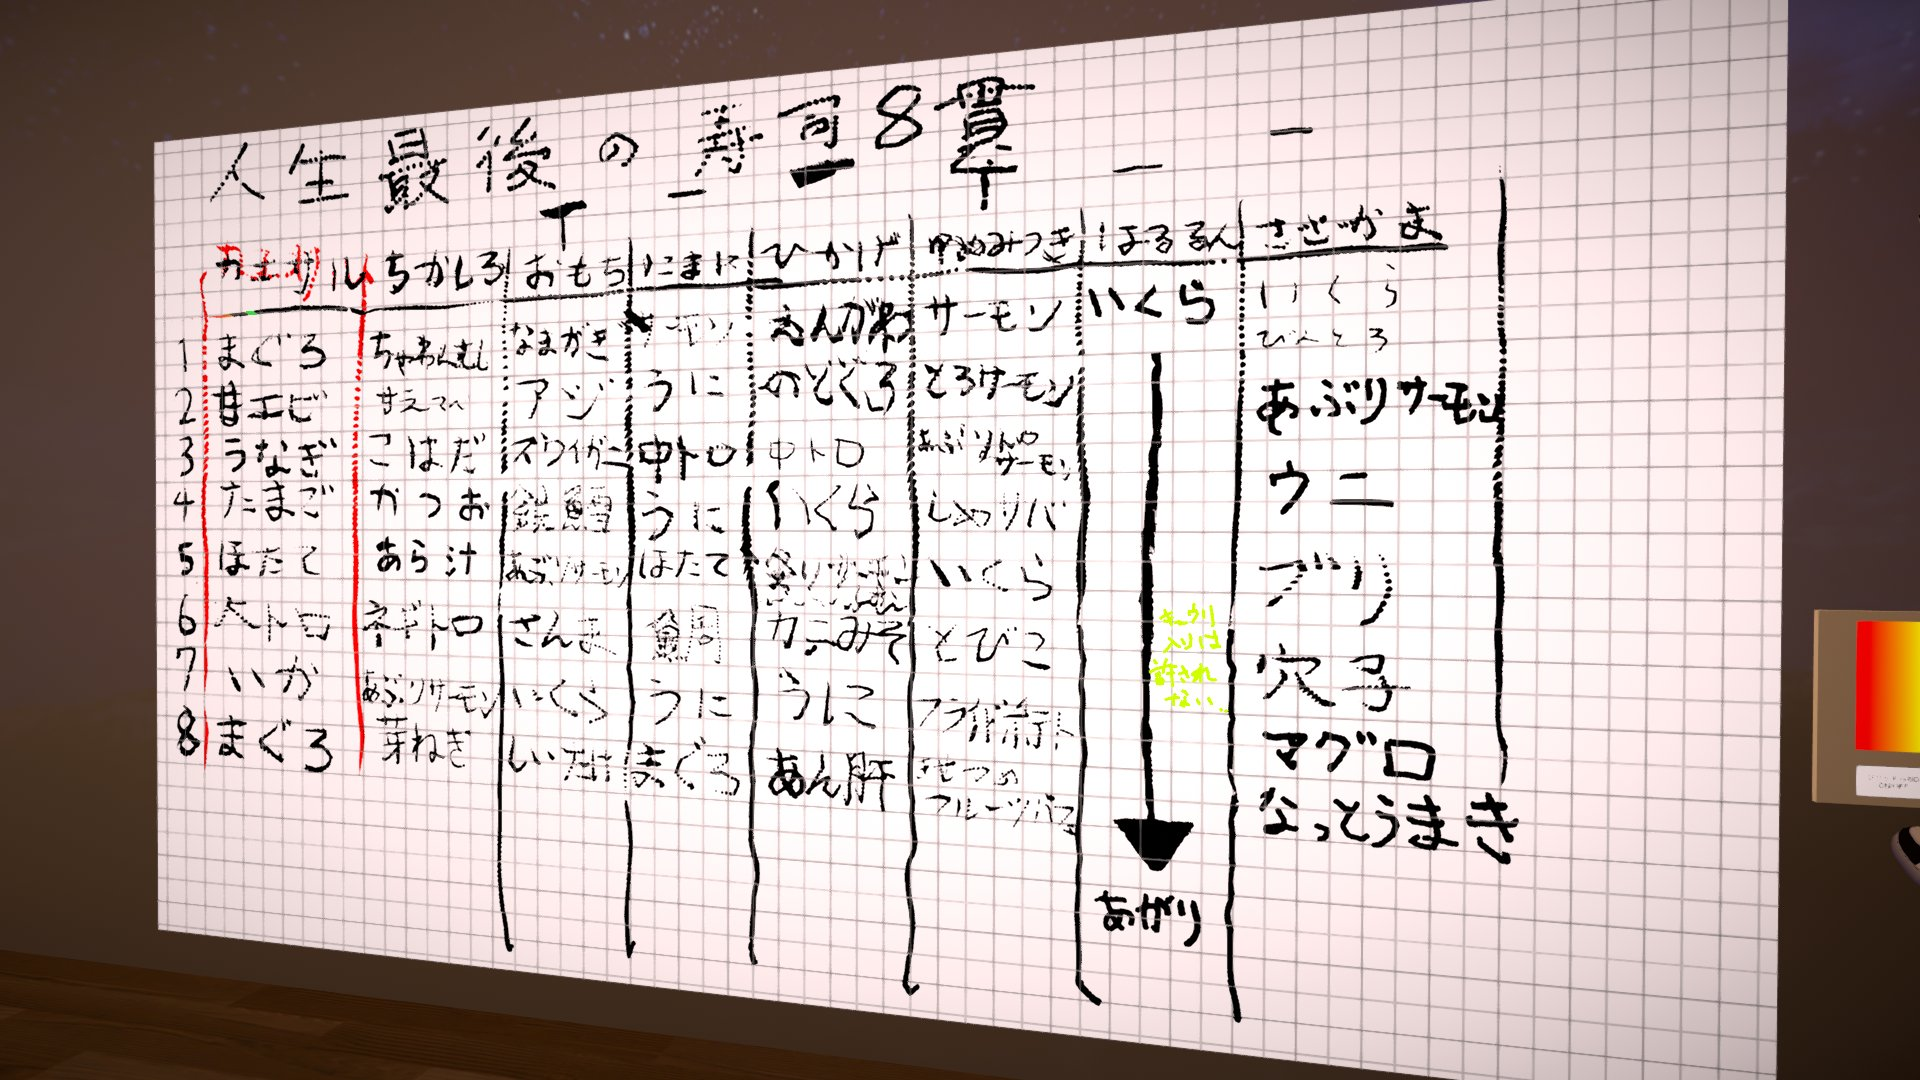 人生最後の寿司8貫
ちかしろ おもち にまに ひかげ はるるん さざかま
1 まぐろ ちゃわんむし なまがき サーモン えんがわ サーモン いくら いくら
びんとろ
2 甘エビ アジ うに のどぐろ とろサーモン あぶりサーモン
3 うなぎ こはだ ズワイガニ 中トロ 中トロ
サーモン
4 たまご かつお うに いくら しめサバ ウニ
5 ほたて あら汁 あぶりサーモン ほたて いくら ブリ
6 大トロ ネギトロ さんま 鯛 カニみそ とびこ 穴子
7 いか あぶりサーモン いくら うに うに フライドポテト マグロ
8 まぐろ 芽ねぎ まぐろ あん肝 なっとうまき
フルーツパフェ
キュウリ
入りは
許され
ない…
あがり